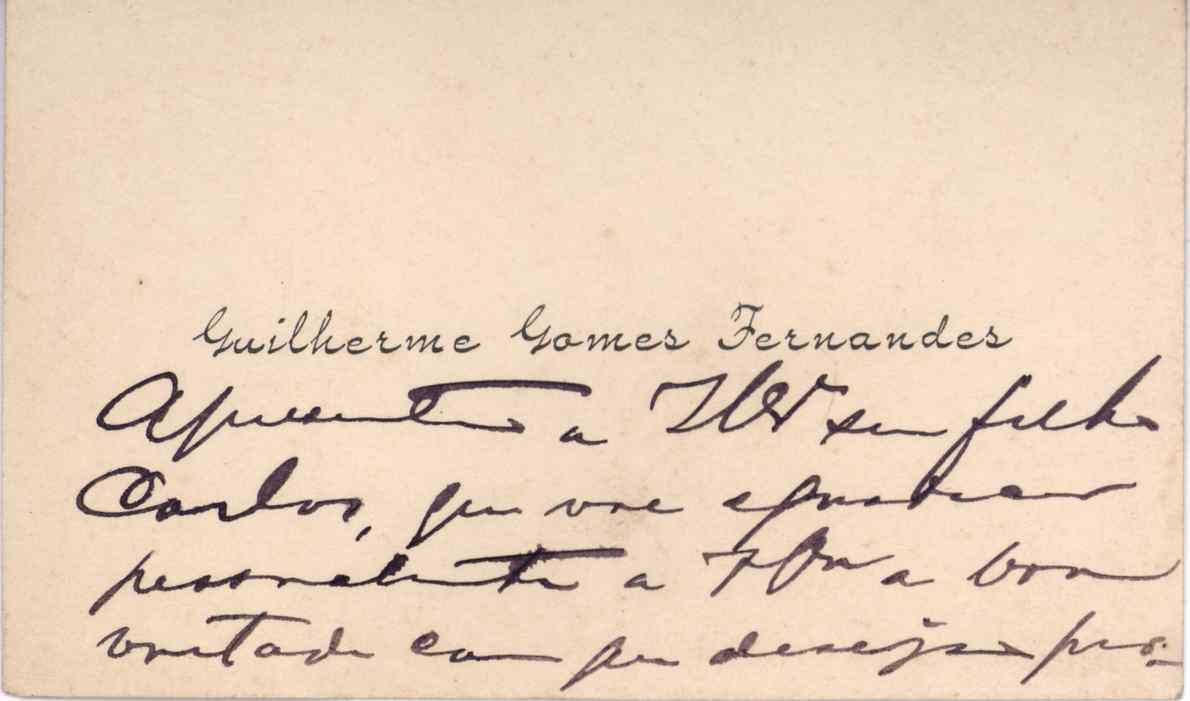 Guilherme Gomes Fernandes
Apresenta a seu filho
Carlos, que vae agradecer
pessoalmente a a boa
vontade com que desejou pro-